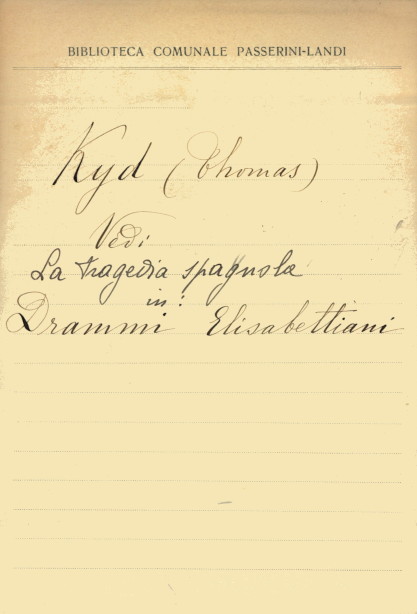 BIBLIOTECA COMUNALE PASSERINI-LANDI
Kyd (Thomas)
Vedi
La tragedia spagnola
in:
Drammi Elisabettiani